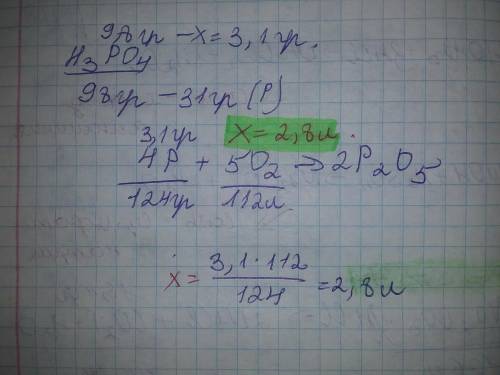 9,8гр – x = 3,1гр.
H3PO4
98гр – 31гр (P)
3,1гр x = 2,8л.
4P + 5O2 → 2P2O5
124гр 112л
x = 3,1·112 / 124 = 2,8л